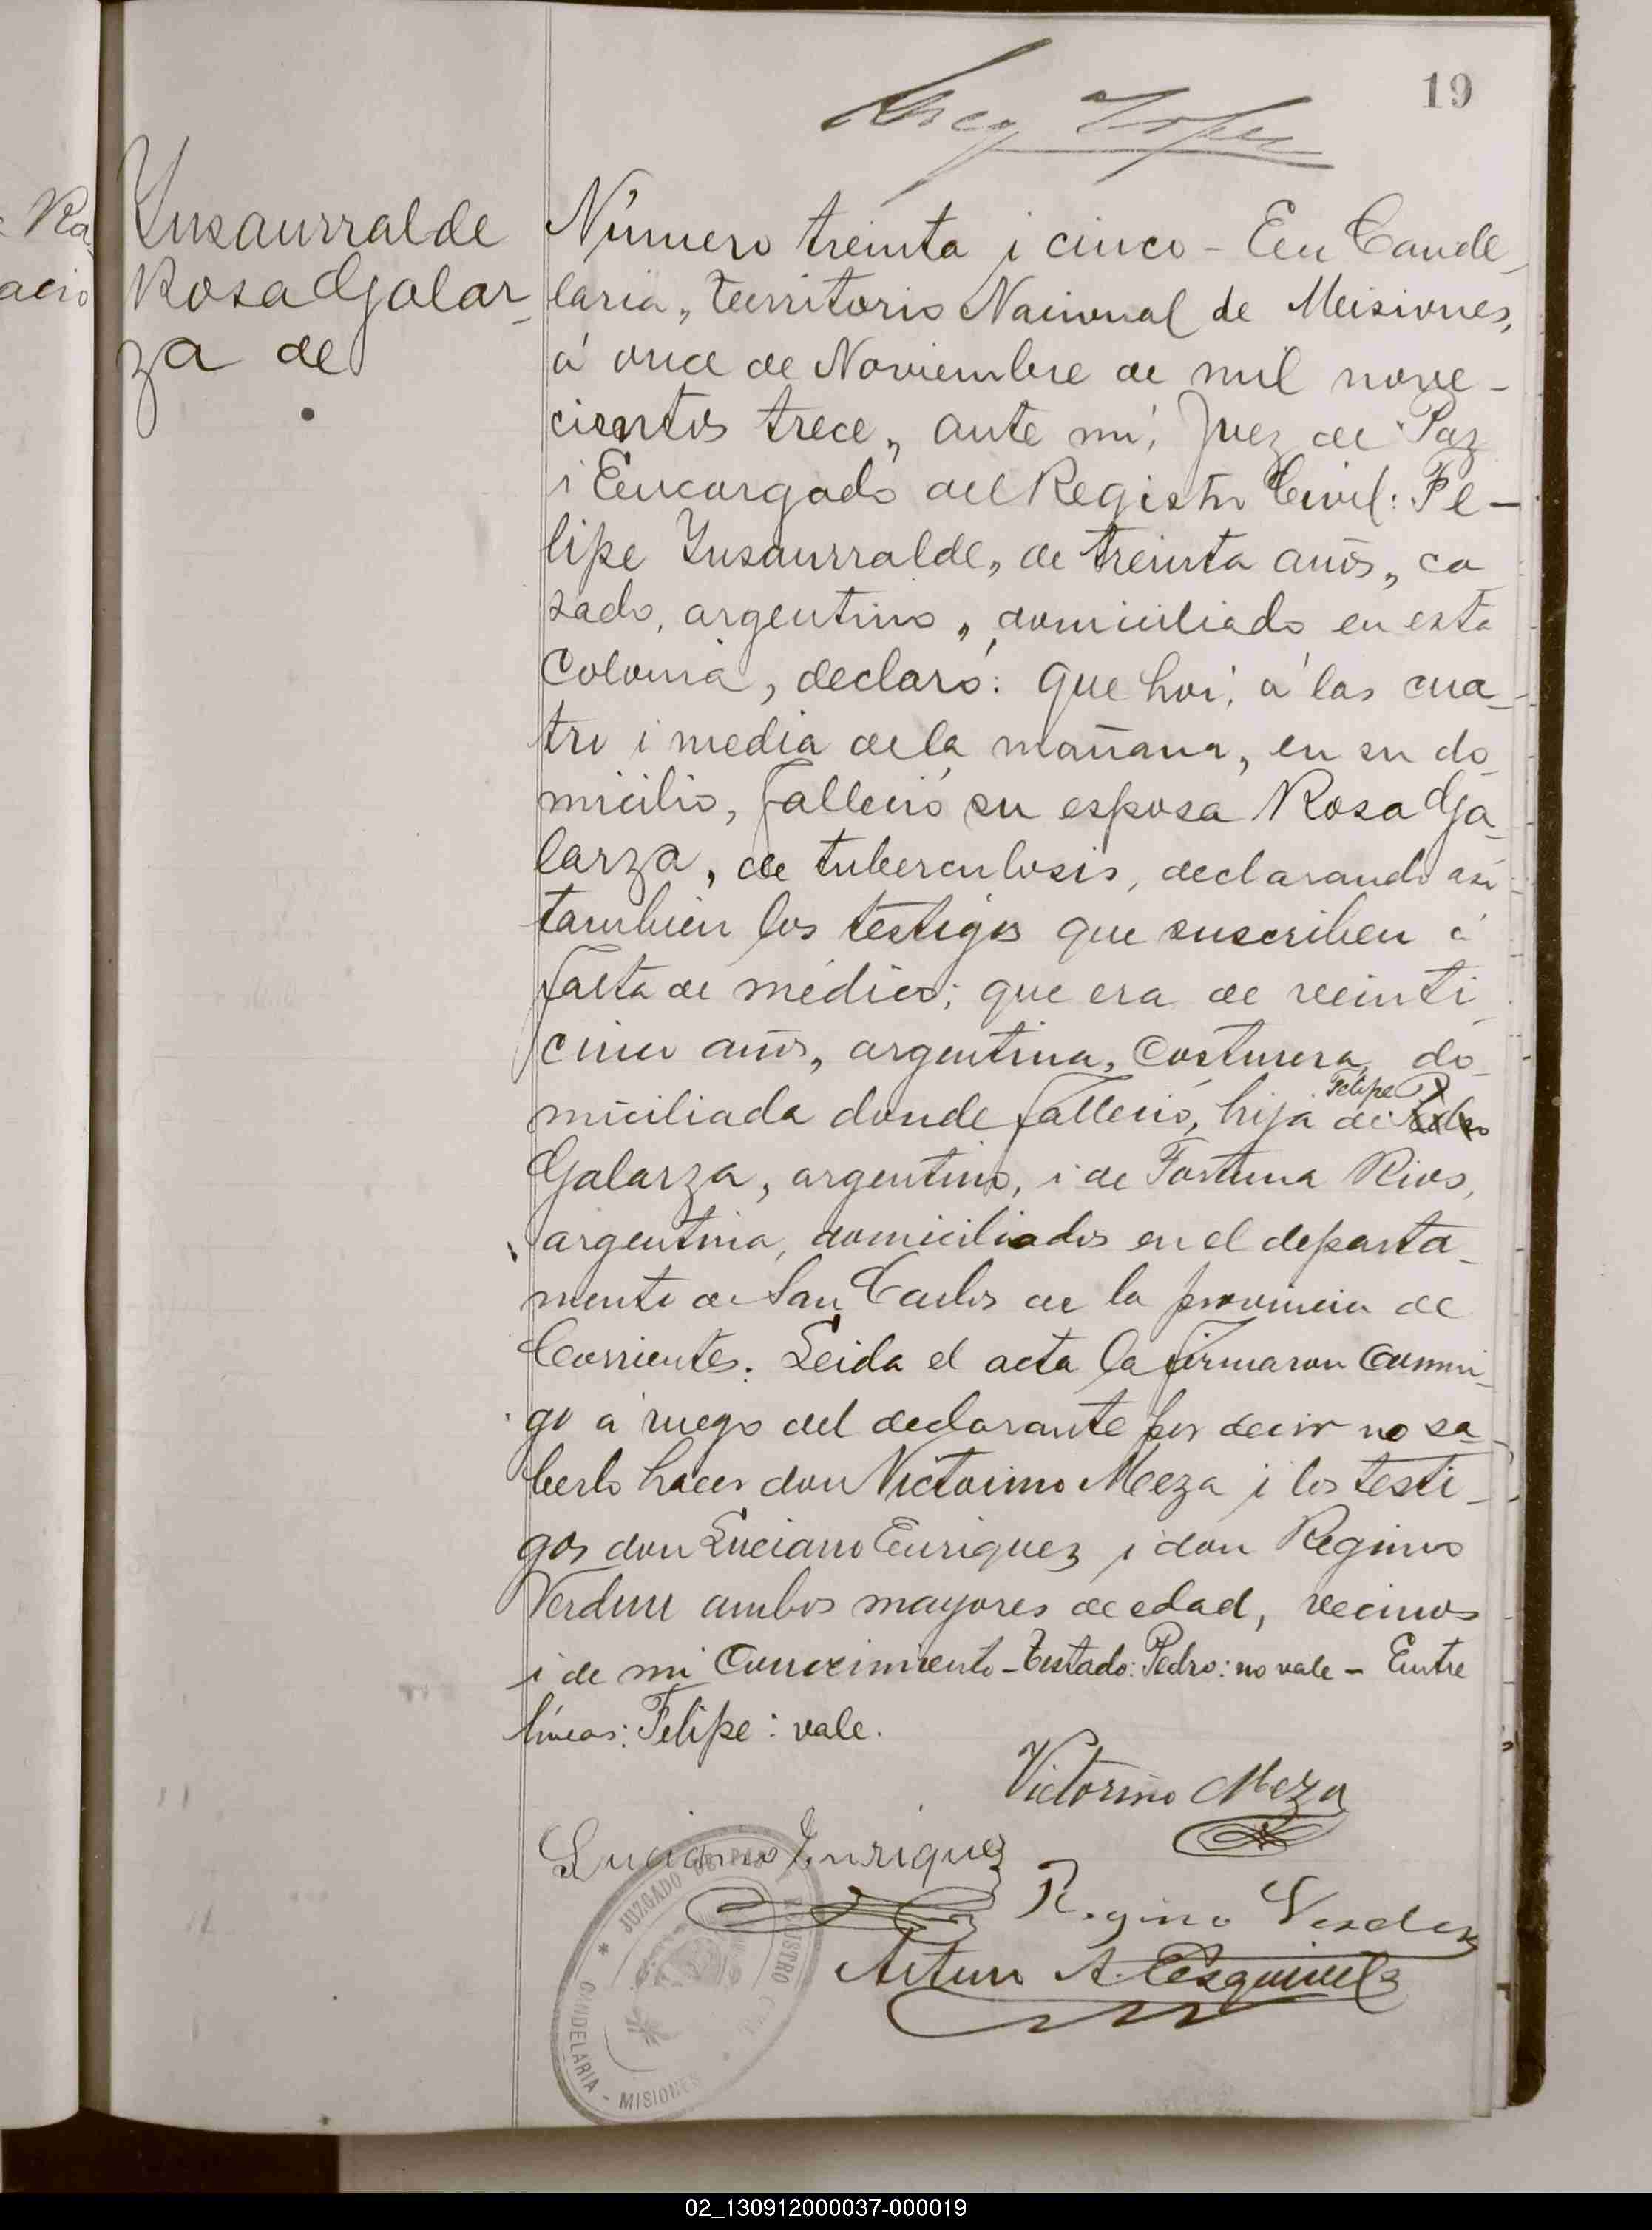 19
Ynsaurralde
Rosa Galar-
za de
Número treinta i cinco - En Cande-
laria, Territorio Nacional de Misiones,
á once de Noviembre de mil nove-
cientos trece, ante mí, Juez de Paz
i Encargado del Registro Civil: Fe-
lipe Ynsaurralde, de treinta años, ca
sado, argentino, domiciliado en esta
Colonia, declaró: que hoi, á las cua-
tro i media de la mañana, en su do-
micilio, falleció su esposa Rosa Ga-
larza, de tuberculosis, declarando asi
tambien los testigos que suscriben á
falta de médico; que era de veinti-
cinco años, argentina, costurera, do-
miciliada donde falleció, hija de Pedro Felipe
Galarza, argentino, i de Fortuna Rios,
argentina, domiciliados en el departa-
mento de San Carlos de la provincia de
Corrientes. Leida el acta la firmaron conmi-
go a ruego del declarante por decir no sa-
berlo hacer don Victorino Meza i los testi-
gos don Luciano Enriquez i don Regino
Verdun ambos mayores de edad, vecinos
i de mi conocimiento - Testado: Pedro: no vale - Entre
líneas: Felipe: vale.
Victorino Meza
Luciano Enriquez
Regino Verdun
Arturo A. Esquivel
JUZGADO DE PAZ
REGISTRO CIVIL
CANDELARIA - MISIONES
02_130912000037-000019